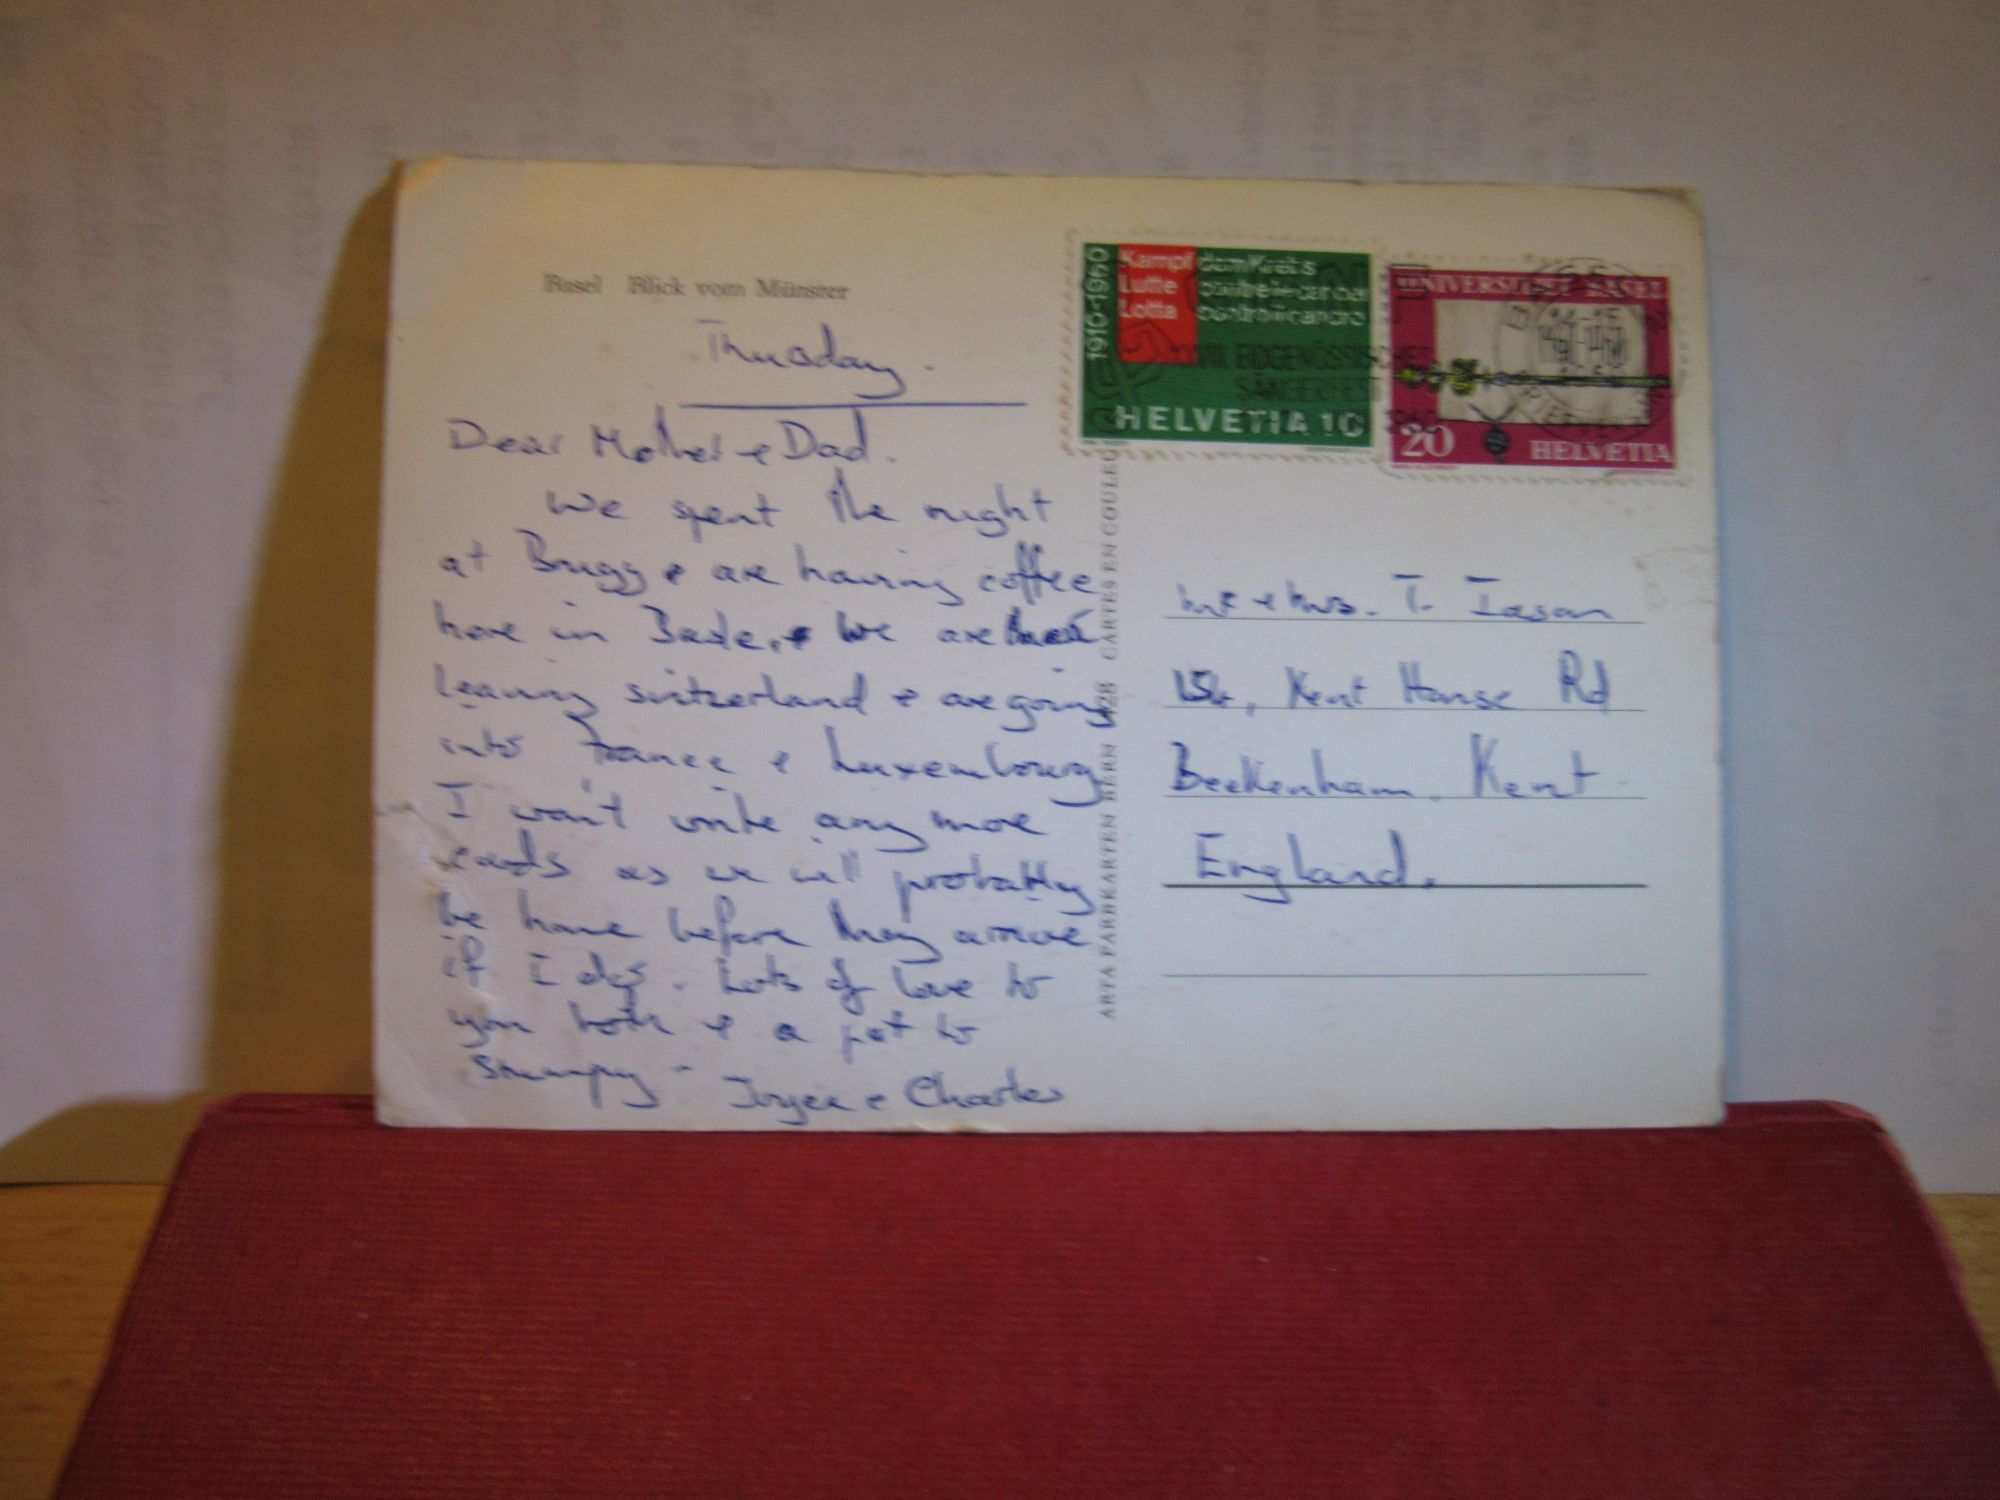 Basel Blick vom Münster
Thursday.
Dear Mother & Dad.
We spent the night
at Brugg & are having coffee
here in Basle. & We are then
leaving Switzerland & are going
into France & Luxembourg
I won't write any more
cards as we will probably
be home before they arrive
if I do. Lots of love to
you both & a pat to
Stumpy - Joyce & Charles
ARTA FARBKARTEN BERN CARTES EN COULEU
1910-1960
Kampf dem Krebs
Lutte contre le cancer
Lotta contro il cancro
HELVETIA 10
EIDGENÖSSISCHES
SÄNGERFEST
UNIVERSITÄT BASEL
20 HELVETIA
Mr & Mrs. T.
Kent House Rd
Beckenham. Kent
England.